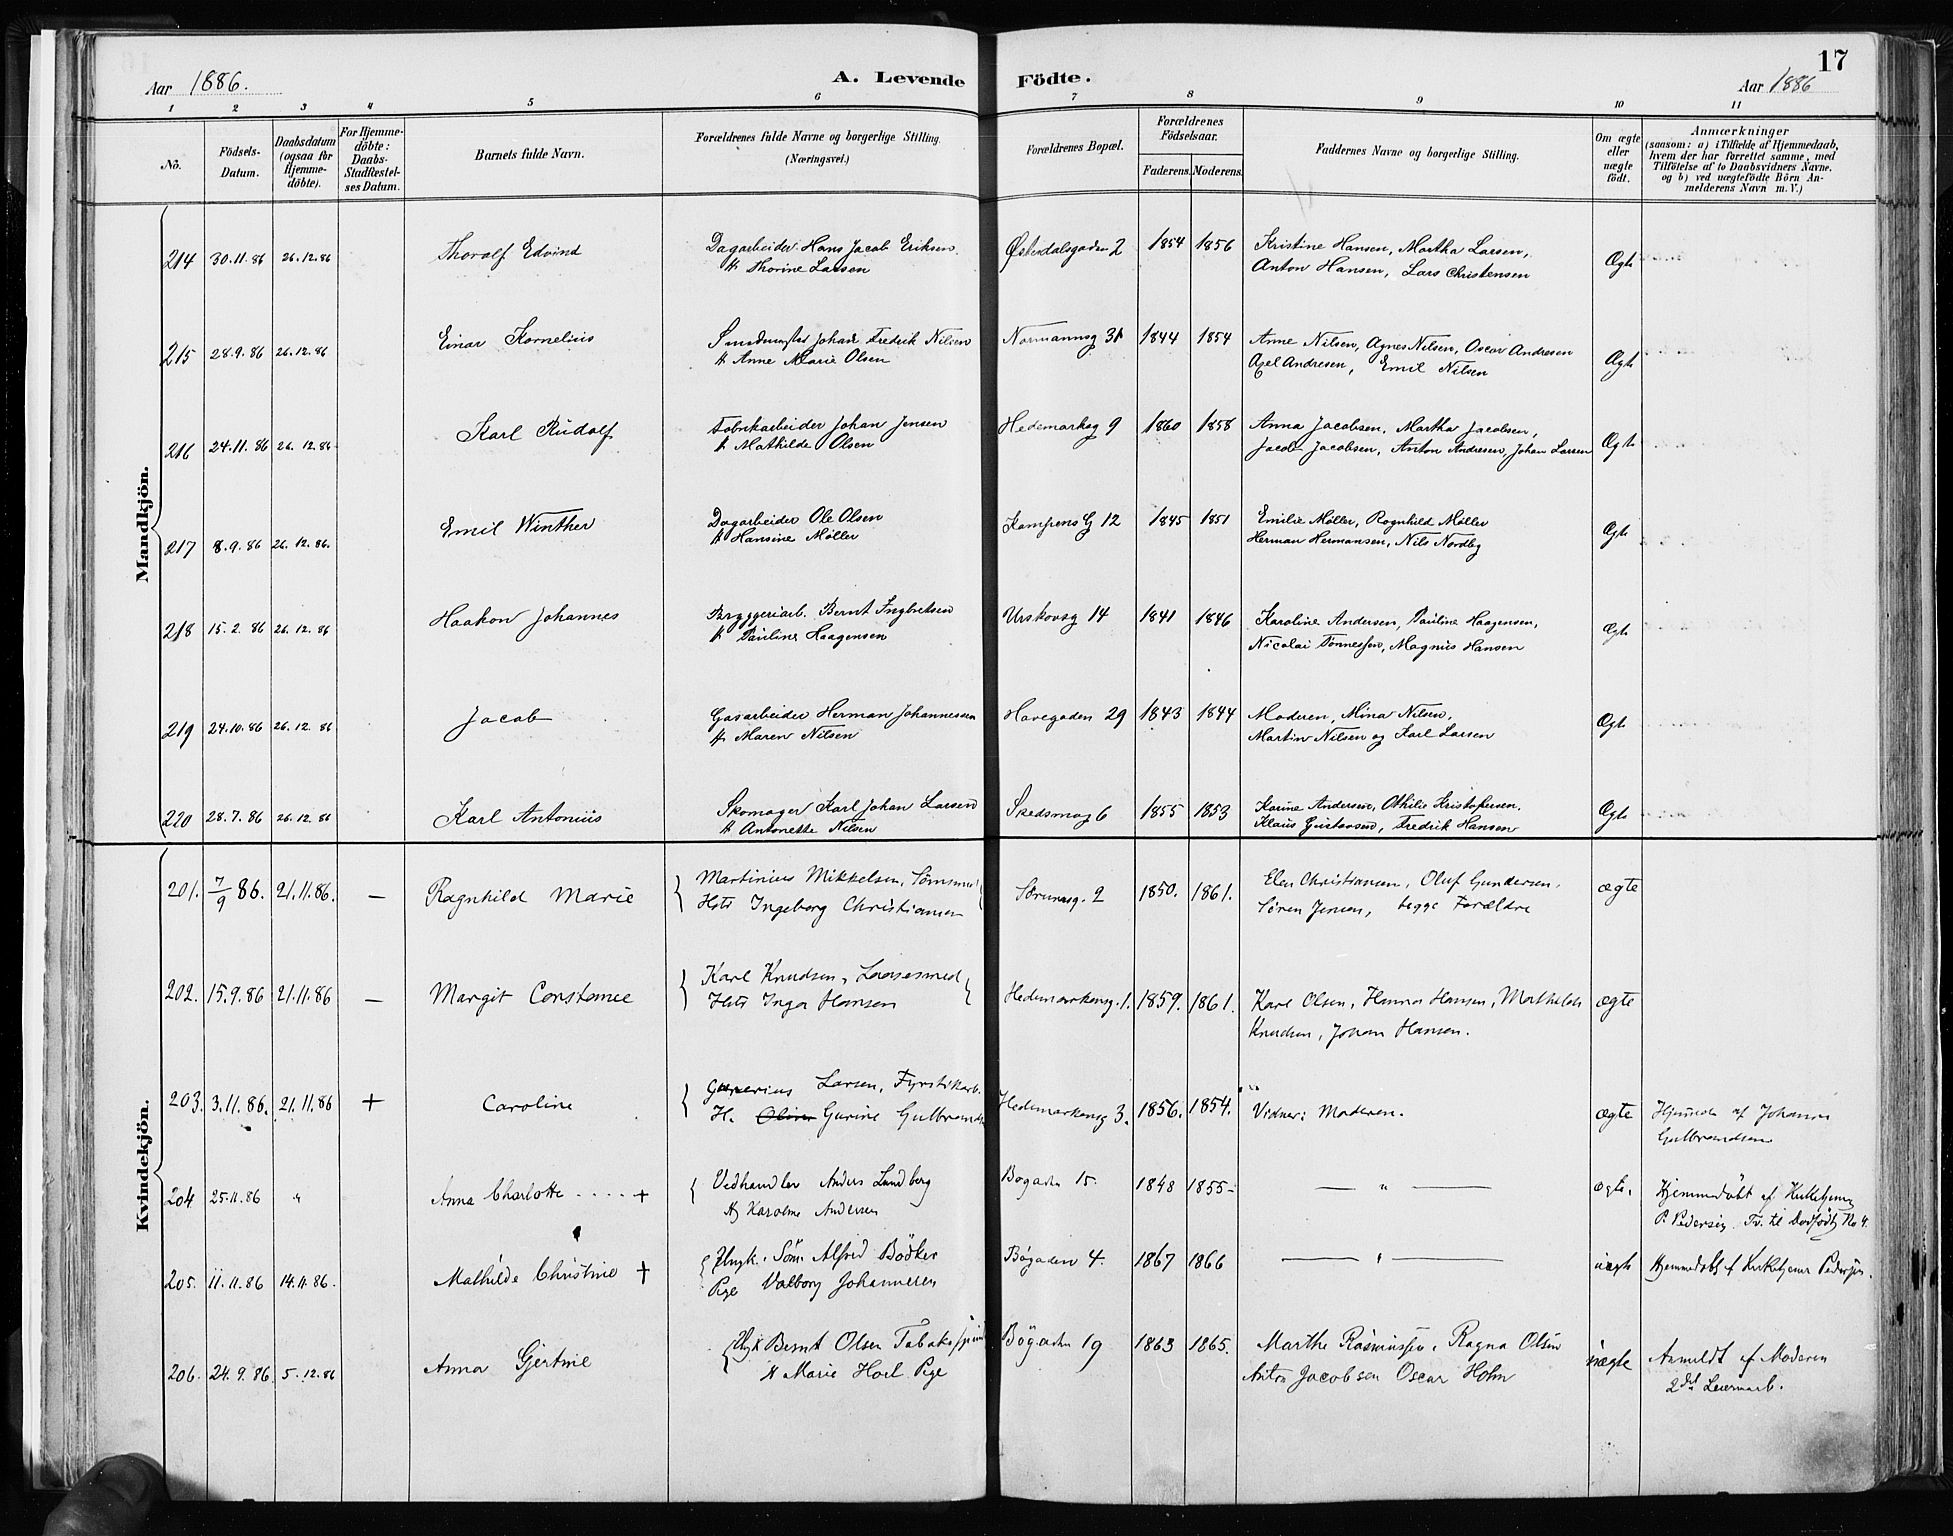 17
Aar 1886.
A. Levende Födte.
Aar 1886
1 2 3 4 5 6 7 8 9 10 11
No.
Födsels-Datum.
Daabsdatum (ogsaa for Hjemme-döbte).
For Hjemme-döbte: Daabs-Stadfæstel-ses Datum.
Barnets fulde Navn.
Forældrenes fulde Navne og borgerlige Stilling.
(Næringsvei.)
Forældrenes Bopæl.
Forældrenes Födselsaar.
Faderens. Moderens.
Faddernes Navne og borgerlige Stilling.
Om ægte eller uægte födt.
Anmærkninger
(saasom: a) i Tilfælde af Hjemmedaab,
hvem der har forrettet samme, med
Tilföielse af to Daabsvidners Navne,
og b) ved uægtefödte Börn An-
melderens Navn m. V.)
Mandkjön.
214 30.11.86 26.12.86 Thoralf Edvind Dagarbeider Hans Jacob Eriksen Østerdalsgaden 2 1854 1856 Kristine Hansen, Martha Larsen, Ægte
H. Thorine Larsen Anton Hansen, Lars Christensen
215 28.9.86 26.12.86 Einar Kornelius Smedmester Johan Fredrik Nilsen Normannsg 31 1844 1854 Anne Nilsen, Agnes Nilsen, Oscar Andresen Ægte
H. Anne Marie Olsen Axel Andresen, Emil Nilsen
216 24.11.86 26.12.86 Karl Rudolf Fabrikarbeider Johan Jensen Hedemarksg 9 1860 1858 Anna Jacobsen, Martha Jacobsen, Ægte
H. Mathilde Olsen Jacob Jacobsen, Anton Andresen, Johan Larsen
217 8.9.86 26.12.86. Emil Winther Dagarbeider Ole Olsen Kampens G 12 1845 1851 Emilie Møller, Ragnhild Møller Ægte
H. Hansine Møller Herman Hermansen, Nils Nordby
218 15.2.86 26.12.86 Haakon Johannes Bryggeriarb. Bernt Ingbretsen Urskovsg 14 1841 1846 Karoline Andersen, Pauline Haagensen, Ægte
H. Pauline Haagensen Nicolai Tønnessen, Magnus Hansen
219 24.10.86 26.12.86 Jacob Gasarbeider Herman Johannessen Havegaden 29 1843 1844 Moderen, Mina Nilsen, Ægte
H. Maren Nilsen Martin Nilsen og Karl Larsen
220 28.7.86 26.12.86 Karl Antonius Skomager Karl Johan Larsen Skedsmog 6 1855 1853 Karine Andersen, Othilie Kristofersen, Ægte
H. Antonette Nilsen Klaus Gustavsen, Fredrik Hansen
Kvindekjön.
201. 7/9 86. 21.11.86. — Ragnhild Marie Martinius Mikkelsen, Sørumsg. 2 1850. 1861. Elen Christiansen, Oluf Gundersen, ægte
Hst Ingeborg Christiansen Sören Jensen, begge Forældre
202. 15.9.86 21.11.86 — Margit Constance Karl Knudsen, Laasesmed Hedemarkensg. 1. 1859. 1861. Karl Olsen, Hanna Hansen, Mathilde ægte
Hst Inga Hansen Knudsen, Johan Hansen.
203. 3.11.86. 21.11.86 + Caroline Larsen, Fyrstikarb. Hedemarkensg 3. 1856. 1854. Vidner: Moderen. ægte Hjemmed. af Johanne
H. Oline Gurine Gulbrands Gulbrandsen
204 25.11.86 " Anna Charlotte .... + Vedhandler Anders Lundberg Bøgaden 15. 1848 1855 — " — ægte. Hjemmedöbt af Kirketjener
H. Karoline Andersen P. Pedersen. Tv. til Dødfødt No 4.
205. 11.11.86 14.11.86. Mathilde Christine + Ungk. Søm. Alfred Bödker Bøgaden 4. 1867 1866 — " — uægte Hjemmedöbt af Kirketjener Pedersen.
Pige Valborg Johannesen
206. 24.9.86. 5.12.86 Anna Gjertine Ungk Bernt Olsen Tobaksspinder Bögaden 19 1863 1865. Marthe Rasmussen, Ragna Olsen uægte Anmeldt af Moderen
H Marie Hoel Pige Anton Jacobsen Oscar Holm 2det Leiermaal.